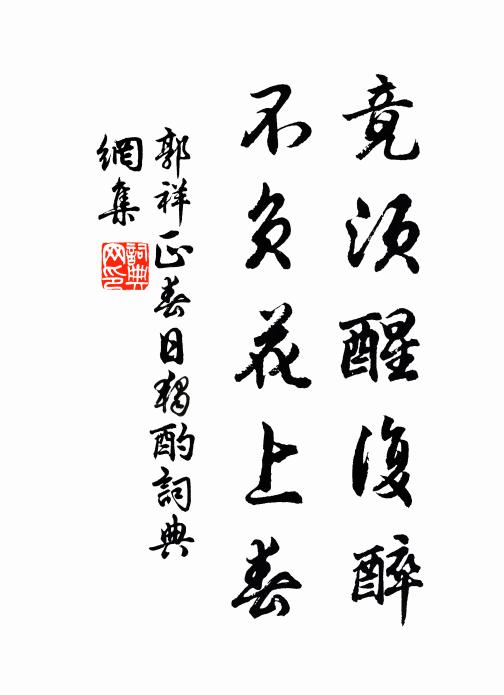 竟须醒復醉
不负花上春
郭祥正春日獨酌詞典
網集
詞典网印